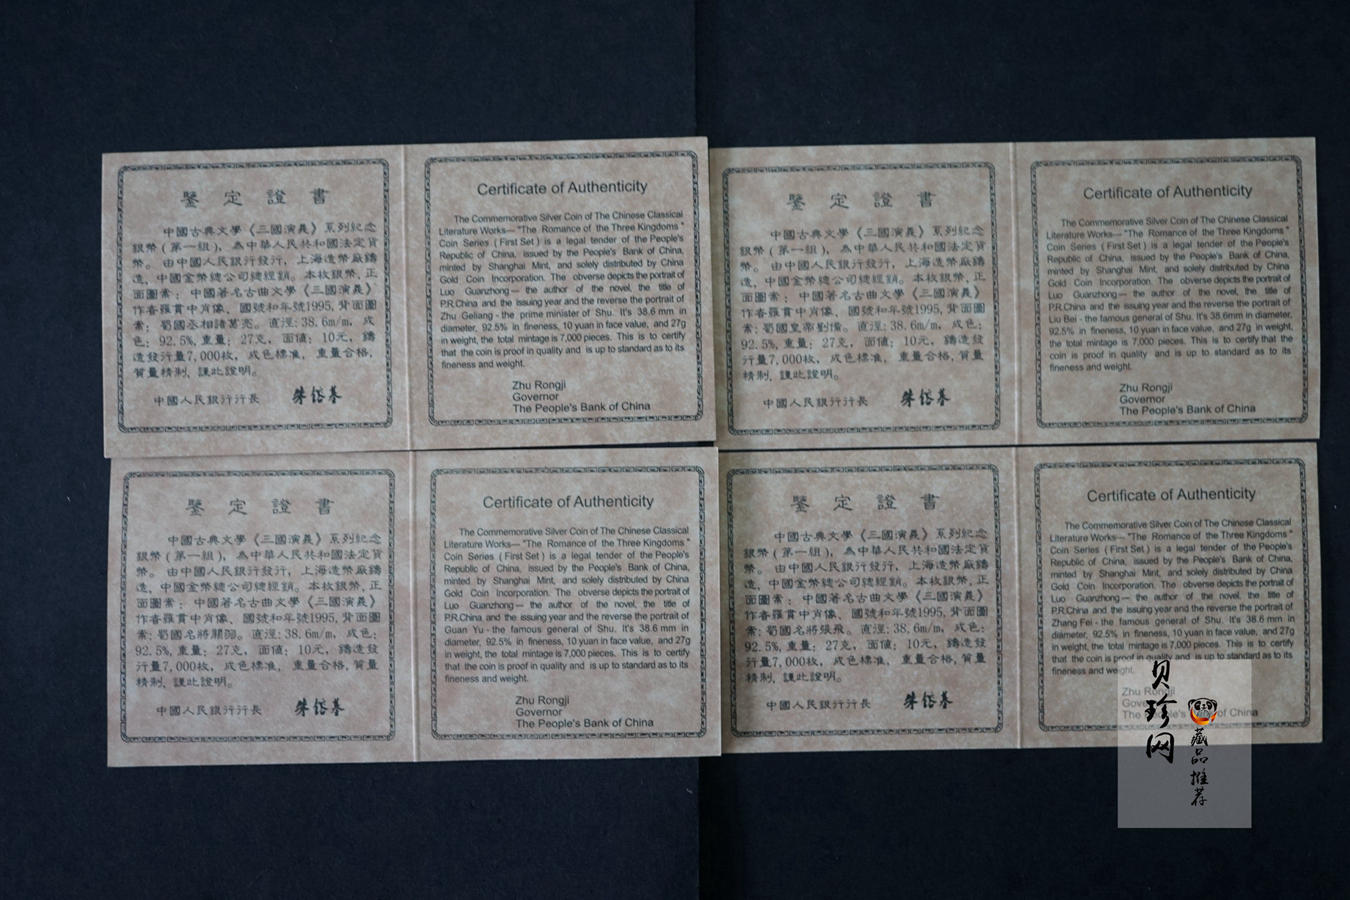 鑒定證書
中國古典文學《三國演義》系列紀念
銀幣(第一組)，為中華人民共和國法定貨
幣。由中國人民銀行發行，上海造幣廠鑄
造，中國金幣總公司總經銷。本枚銀幣，正
面圖案：中國著名古典文學《三國演義》
作者羅貫中肖像、國號和年號1995，背面圖
案：蜀國丞相諸葛亮。直徑：38.6m/m，成
色：92.5%，重量：27克，面值：10元，鑄
造發行量7,000枚，成色標準，重量合格，
質量精制，謹此證明。
中國人民銀行行長 朱鎔基
Certificate of Authenticity
The Commemorative Silver Coin of The Chinese Classical
Literature Works— "The Romance of the Three Kingdoms"
Coin Series (First Set) is a legal tender of the People's
Republic of China, issued by the People's Bank of China,
minted by Shanghai Mint, and solely distributed by China
Gold Coin Incorporation. The obverse depicts the portrait of
Luo Guanzhong— the author of the novel, the title of
P.R.China and the issuing year and the reverse the portrait of
Zhu Geliang - the prime minister of Shu. It's 38.6 mm in
diameter, 92.5% in fineness, 10 yuan in face value, and 27g
in weight, the total mintage is 7,000 pieces. This is to certify
that the coin is proof in quality and is up to standard as to its
fineness and weight.
Zhu Rongji
Governor
The People's Bank of China
鑒定證書
中國古典文學《三國演義》系列紀念
銀幣(第一組)，為中華人民共和國法定貨
幣。由中國人民銀行發行，上海造幣廠鑄
造，中國金幣總公司總經銷。本枚銀幣，正
面圖案：中國著名古典文學《三國演義》
作者羅貫中肖像、國號和年號1995，背面圖
案：蜀國皇帝劉備。直徑：38.6m/m，成色：
92.5%，重量：27克，面值：10元，鑄造發
行量7,000枚，成色標準，重量合格，質量
精制，謹此證明。
中國人民銀行行長 朱鎔基
Certificate of Authenticity
The Commemorative Silver Coin of The Chinese Classical
Literature Works— "The Romance of the Three Kingdoms"
Coin Series (First Set) is a legal tender of the People's
Republic of China, issued by the People's Bank of China,
minted by Shanghai Mint, and solely distributed by China
Gold Coin Incorporation. The obverse depicts the portrait of
Luo Guanzhong — the author of the novel, the title of
P.R.China and the issuing year and the reverse the portrait of
Liu Bei - the famous general of Shu. It's 38.6mm in diameter,
92.5% in fineness, 10 yuan in face value, and 27g in weight,
the total mintage is 7,000 pieces. This is to certify that the
coin is proof in quality and is up to standard as to its
fineness and weight.
Zhu Rongji
Governor
The People's Bank of China
鑒定證書
中國古典文學《三國演義》系列紀念
銀幣(第一組)，為中華人民共和國法定貨
幣。由中國人民銀行發行，上海造幣廠鑄
造，中國金幣總公司總經銷。本枚銀幣，正
面圖案：中國著名古典文學《三國演義》
作者羅貫中肖像、國號和年號1995，背面圖
案：蜀國名將關羽。直徑：38.6m/m，成色：
92.5%，重量：27克，面值：10元，鑄造發
行量7,000枚，成色標準，重量合格，質量
精制，謹此證明。
中國人民銀行行長 朱鎔基
Certificate of Authenticity
The Commemorative Silver Coin of The Chinese Classical
Literature Works— "The Romance of the Three Kingdoms"
Coin Series (First Set) is a legal tender of the People's
Republic of China, issued by the People's Bank of China,
minted by Shanghai Mint, and solely distributed by China
Gold Coin Incorporation. The obverse depicts the portrait of
Luo Guanzhong — the author of the novel, the title of
P.R.China and the issuing year and the reverse the portrait of
Guan Yu - the famous general of Shu. It's 38.6 mm in
diameter, 92.5% in fineness, 10 yuan in face value, and 27g
in weight, the total mintage is 7,000 pieces. This is to certify
that the coin is proof in quality and is up to standard as to its
fineness and weight.
Zhu Rongji
Governor
The People's Bank of China
鑒定證書
中國古典文學《三國演義》系列紀念
銀幣(第一組)，為中華人民共和國法定貨
幣。由中國人民銀行發行，上海造幣廠鑄
造，中國金幣總公司總經銷。本枚銀幣，正
面圖案：中國著名古典文學《三國演義》
作者羅貫中肖像、國號和年號1995，背面圖
案：蜀國名將張飛。直徑：38.6m/m，成色：
92.5%，重量：27克，面值：10元，鑄造發
行量7,000枚，成色標準，重量合格，質量
精制，謹此證明。
中國人民銀行行長 朱鎔基
Certificate of Authenticity
The Commemorative Silver Coin of The Chinese Classical
Literature Works— "The Romance of the Three Kingdoms"
Coin Series (First Set) is a legal tender of the People's
Republic of China, issued by the People's Bank of China,
minted by Shanghai Mint, and solely distributed by China
Gold Coin Incorporation. The obverse depicts the portrait of
Luo Guanzhong — the author of the novel, the title of
P.R.China and the issuing year and the reverse the portrait of
Zhang Fei - the famous general of Shu. It's 38.6 mm in
diameter, 92.5% in fineness, 10 yuan in face value, and 27g
in weight, the total mintage is 7,000 pieces. This is to certify
that the coin is proof in quality and is up to standard as to its
fineness and weight.
Zhu Rongji
Governor
The People's Bank of China
贝珍网
藏品推荐